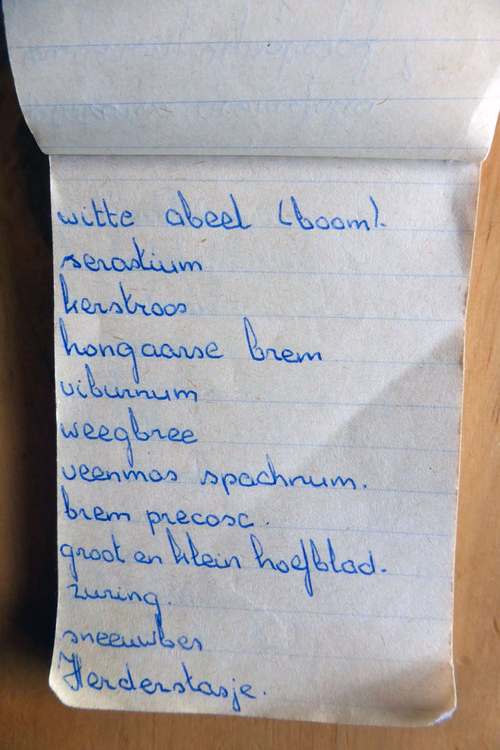 witte abeel (boom).
serastium
kerstroos
hongaarse brem
viburnum
weegbree
veenmos spachnum.
brem precosc.
groot en klein hoefblad.
zuring.
sneeuwbes
Herderstasje.